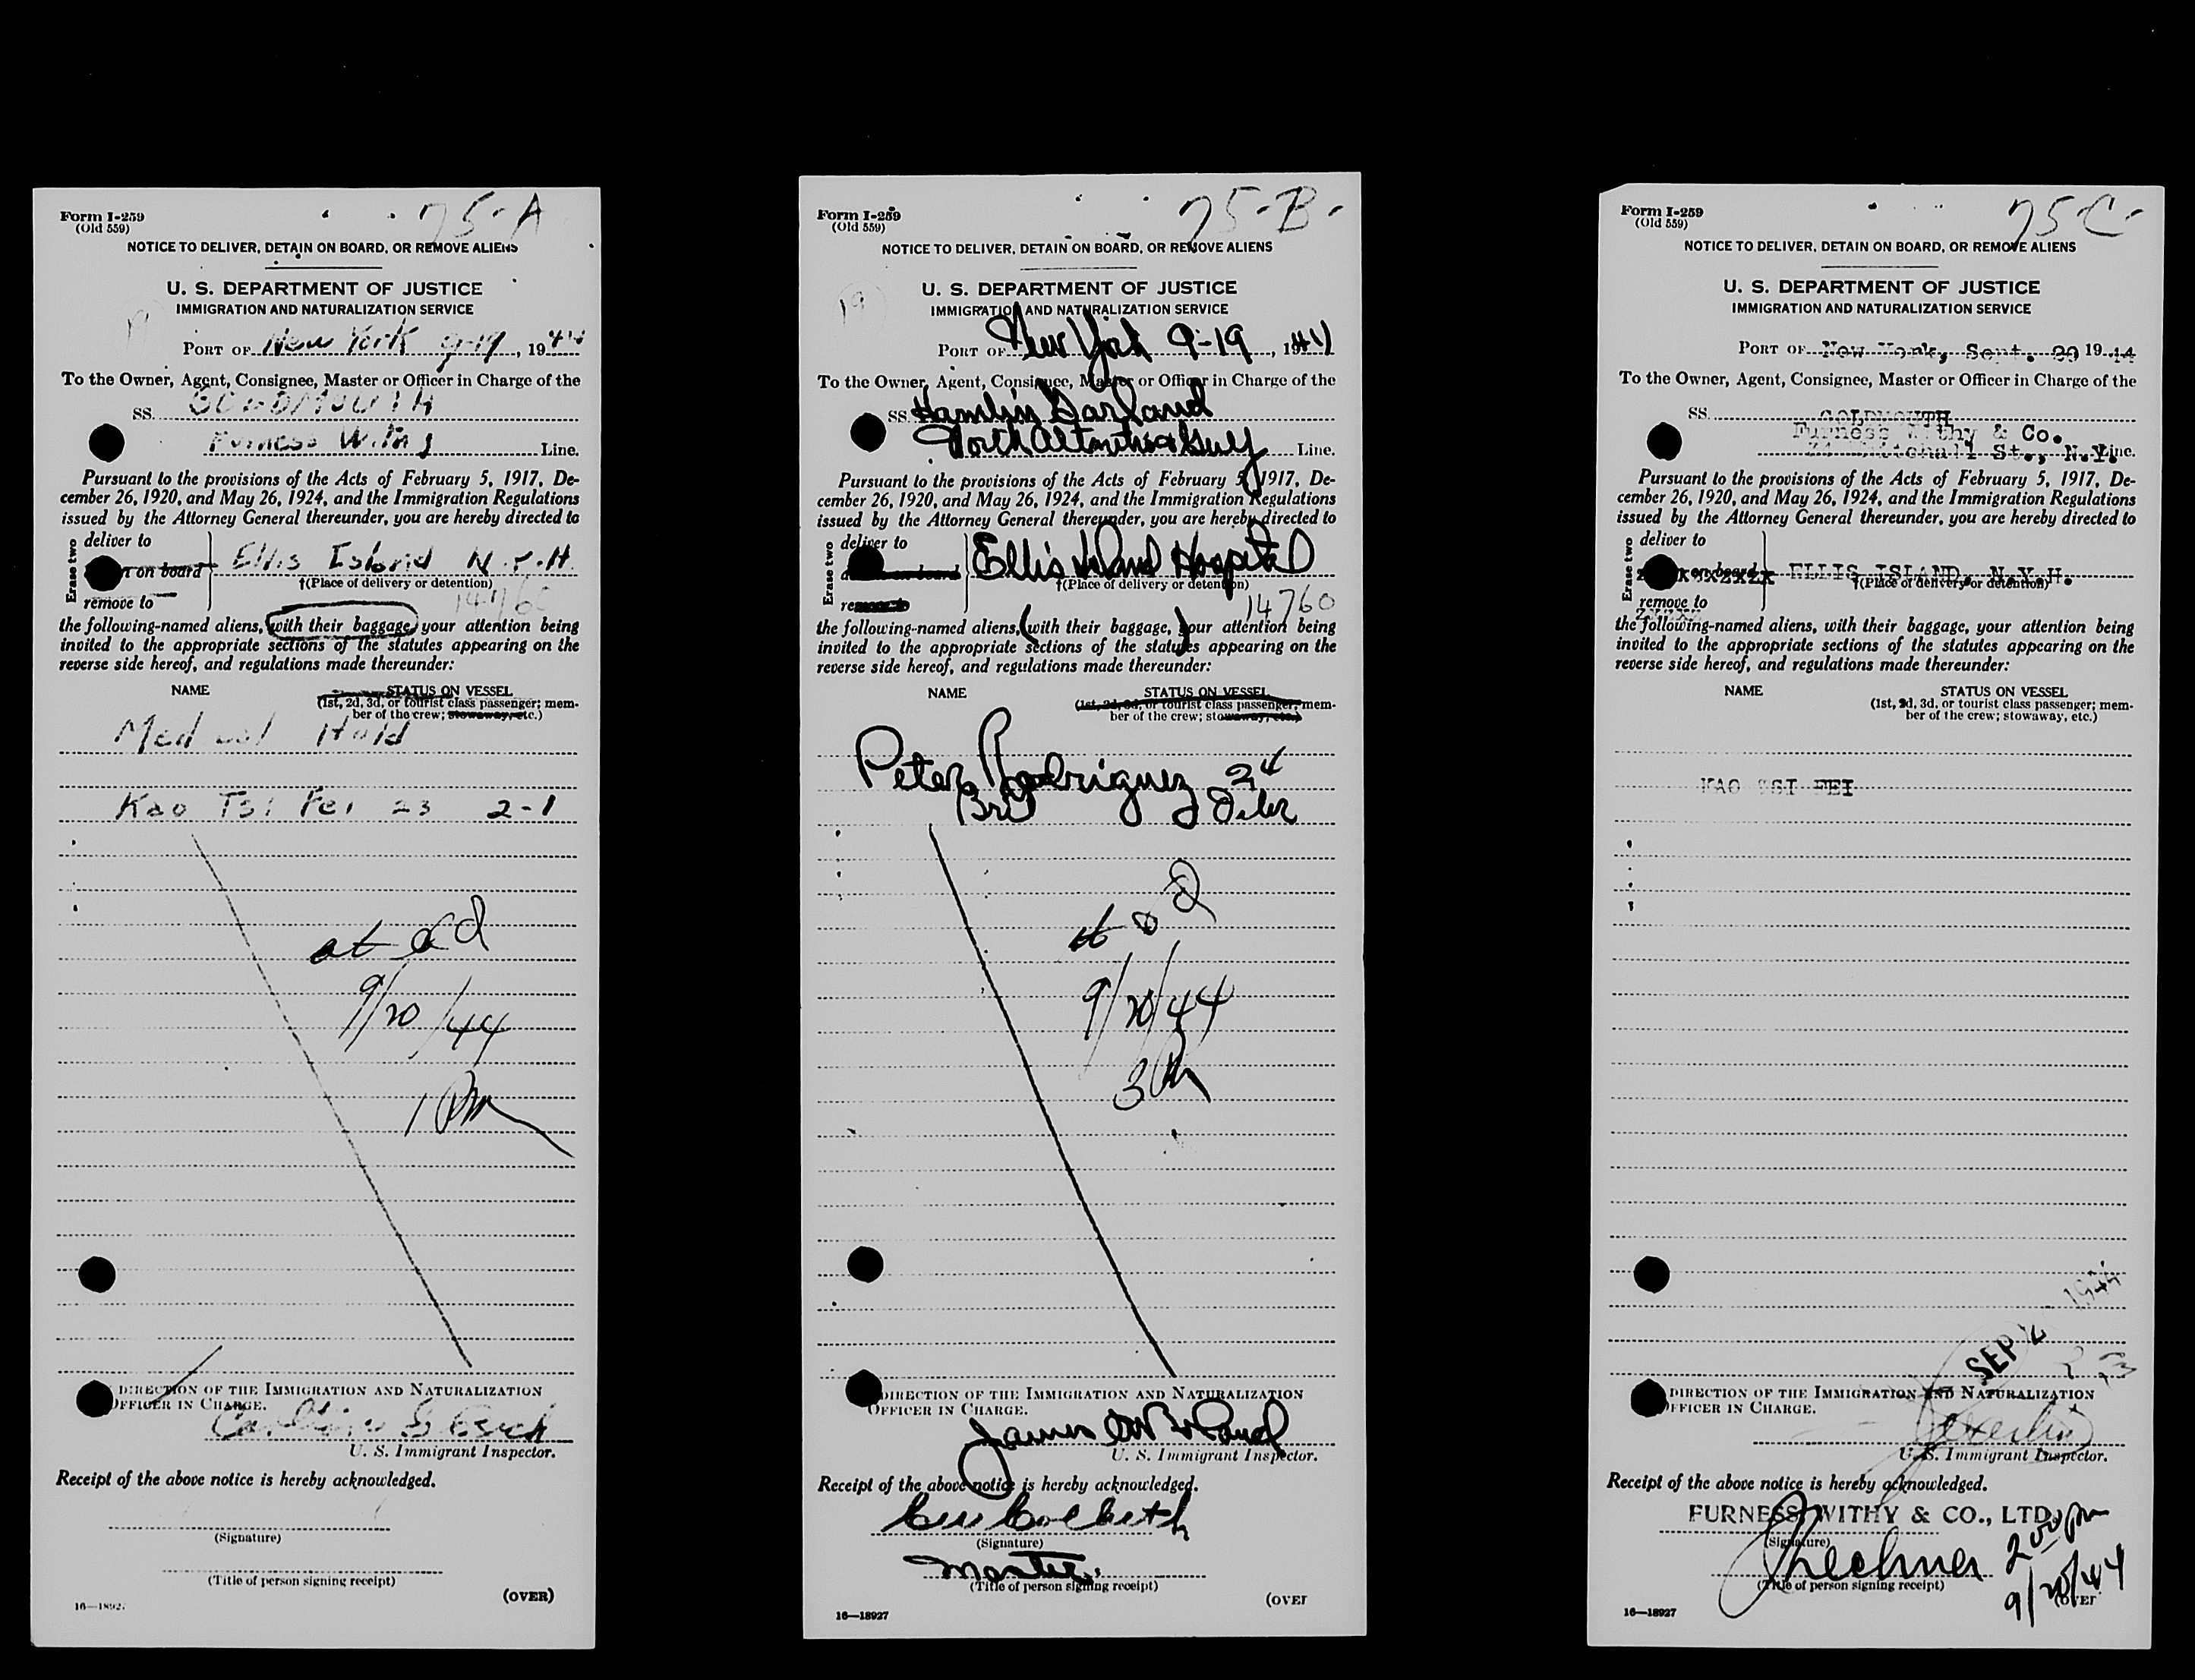 75-A
Form I-259
(Old 559)
NOTICE TO DELIVER, DETAIN ON BOARD, OR REMOVE ALIENS
U. S. DEPARTMENT OF JUSTICE
IMMIGRATION AND NATURALIZATION SERVICE
PORT OF New York 9-19, 1944
To the Owner, Agent, Consignee, Master or Officer in Charge of the
SS. GOLDMOUTH
Furness Withy Line.
Pursuant to the provisions of the Acts of February 5, 1917, De-
cember 26, 1920, and May 26, 1924, and the Immigration Regulations
issued by the Attorney General thereunder, you are hereby directed to
Erase two
deliver to
on board
Ellis Island N.Y.H.
†(Place of delivery or detention)
remove to
14760
the following-named aliens, with their baggage, your attention being
invited to the appropriate sections of the statutes appearing on the
reverse side hereof, and regulations made thereunder:
NAME
STATUS ON VESSEL
(1st, 2d, 3d, or tourist class passenger; mem-
ber of the crew; stowaway, etc.)
Medical Hold
Kao Tsi Fei 23 2-1
at
9/20/44
1 PM
DIRECTION OF THE IMMIGRATION AND NATURALIZATION
OFFICER IN CHARGE.
U. S. Immigrant Inspector.
Receipt of the above notice is hereby acknowledged.
(Signature)
(Title of person signing receipt)
(OVER)
75-B-
Form I-259
(Old 559)
NOTICE TO DELIVER, DETAIN ON BOARD, OR REMOVE ALIENS
U. S. DEPARTMENT OF JUSTICE
IMMIGRATION AND NATURALIZATION SERVICE
19
PORT OF New York 9-19, 1944
To the Owner, Agent, Consignee, Master or Officer in Charge of the
SS. Hamlin Garland
North Atlantic & Gulf Line.
Pursuant to the provisions of the Acts of February 5, 1917, De-
cember 26, 1920, and May 26, 1924, and the Immigration Regulations
issued by the Attorney General thereunder, you are hereby directed to
Erase two
deliver to
Ellis Island Hospital
†(Place of delivery or detention)
remove to
14760
the following-named aliens, (with their baggage,) your attention being
invited to the appropriate sections of the statutes appearing on the
reverse side hereof, and regulations made thereunder:
NAME
STATUS ON VESSEL
(1st, 2d, 3d, or tourist class passenger; mem-
ber of the crew; stowaway, etc.)
Peter Rodriguez 24
Bri
9/20/44
3 PM
DIRECTION OF THE IMMIGRATION AND NATURALIZATION
OFFICER IN CHARGE.
James
U. S. Immigrant Inspector.
Receipt of the above notice is hereby acknowledged.
(Signature)
Master.
(Title of person signing receipt)
(OVER
16—18927
75-C-
Form I-259
(Old 559)
NOTICE TO DELIVER, DETAIN ON BOARD, OR REMOVE ALIENS
U. S. DEPARTMENT OF JUSTICE
IMMIGRATION AND NATURALIZATION SERVICE
PORT OF New York, Sept. 20 1944
To the Owner, Agent, Consignee, Master or Officer in Charge of the
SS. GOLDMOUTH
Furness Withy & Co.
34 Whitehall St., N.Y. Line.
Pursuant to the provisions of the Acts of February 5, 1917, De-
cember 26, 1920, and May 26, 1924, and the Immigration Regulations
issued by the Attorney General thereunder, you are hereby directed to
Erase two
deliver to
on board
ELLIS ISLAND, N.Y.H.
†(Place of delivery or detention)
remove to
the following-named aliens, with their baggage, your attention being
invited to the appropriate sections of the statutes appearing on the
reverse side hereof, and regulations made thereunder:
NAME
STATUS ON VESSEL
(1st, 2d, 3d, or tourist class passenger; mem-
ber of the crew; stowaway, etc.)
KAO TSI FEI
SEP 1944
DIRECTION OF THE IMMIGRATION AND NATURALIZATION
OFFICER IN CHARGE.
U. S. Immigrant Inspector.
Receipt of the above notice is hereby acknowledged.
FURNESS WITHY & CO., LTD.
(Signature)
2 00 pm
(Title of person signing receipt)
9/20/44
(OVER
16—18927